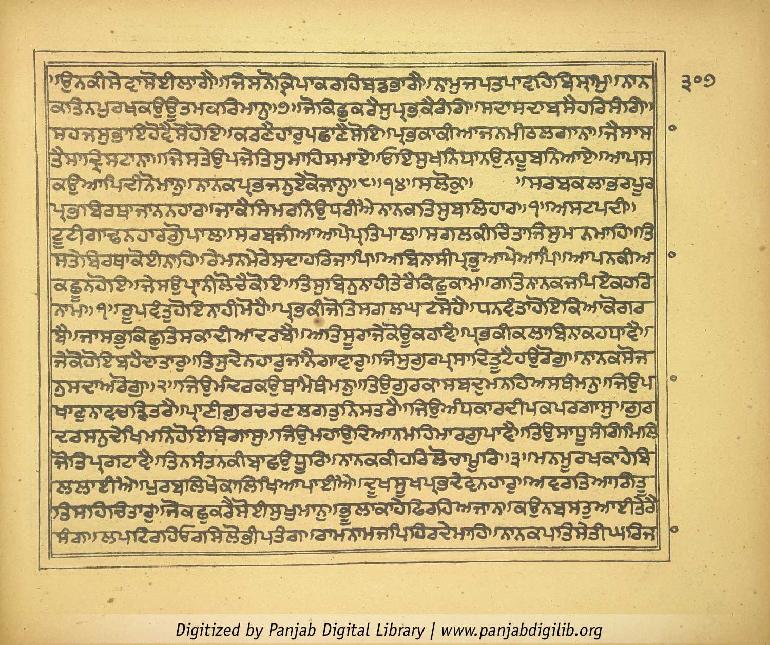 ॥ਉਨਕੀਸੇਵਾਸੋਈਲਾਗੈ॥ਜਿਸਨੋਕ੍ਰਿਪਾਕਰਹਿਬਡਭਾਗੈ॥ਨਾਮੁਜਪਤਪਾਵਹਿਬਿਸ੍ਰਾਮੁ॥ਨਾਨ
੩੦੭
ਕਤਿਨਪੁਰਖਕਉਊਤਮਕਰਿਮਾਨੁ॥੭॥ਜੋਕਿਛੁਕਰੈਸੁਪ੍ਰਭਕੈਰੰਗਿ॥ਸਦਾਸਦਾਬਸੈਹਰਿਸੰਗਿ॥
ਸਹਜਸੁਭਾਇਹੋਵੈਸੋਹੋਇ॥ਕਰਣੈਹਾਰੁਪਛਾਣੈਸੋਇ॥ਪ੍ਰਭਕਾਕੀਆਜਨਮੀਠਲਗਾਨਾ॥ਜੈਸਾਸਾ
ਤੈਸਾਦ੍ਰਿਸਟਾਨਾ॥ਜਿਸਤੇਉਪਜੇਤਿਸੁਮਾਹਿਸਮਾਏ॥ਓਇਸੁਖਨਿਧਾਨਉਨਹੂਬਨਿਆਏ॥ਆਪਸ
ਕਉਆਪਿਦੀਨੋਮਾਨੁ॥ਨਾਨਕਪ੍ਰਭਜਨੁਏਕੋਜਾਨੁ॥੮॥੧੪॥ਸਲੋਕੁ॥ ॥ਸਰਬਕਲਾਭਰਪੂਰ
ਪ੍ਰਭਬਿਰਥਾਜਾਨਨਹਾਰ॥ਜਾਕੈਸਿਮਰਨਿਉਧਰੀਐਨਾਨਕਤਿਸੁਬਲਿਹਾਰ॥੧॥ਅਸਟਪਦੀ॥
ਟੂਟੀਗਾਢਨਹਾਰਗੋੁਪਾਲ॥ਸਰਬਜੀਆਆਪੇਪ੍ਰਤਿਪਾਲ॥ਸਗਲਕੀਚਿੰਤਾਜਿਸੁਮਨਮਾਹਿ॥ਤਿ
ਸਤੇਬਿਰਥਾਕੋਈਨਾਹਿ॥ਰੇਮਨਮੇਰੇਸਦਾਹਰਿਜਾਪਿ॥ਅਬਿਨਾਸੀਪ੍ਰਭੁਆਪੇਆਪਿ॥ਆਪਨਕੀਆ
ਕਛੂਨਹੋਇ॥ਜੇਸਉਪ੍ਰਾਨੀਲੋਚੈਕੋਇ॥ਤਿਸੁਬਿਨੁਨਾਹੀਤੇਰੈਕਿਛੁਕਾਮ॥ਗਤਿਨਾਨਕਜਪਿਏਕਹਰਿ
ਨਾਮ॥੧॥ਰੂਪਵੰਤੁਹੋਇਨਾਹੀਮੋਹੈ॥ਪ੍ਰਭਕੀਜੋਤਿਸਗਲਘਟਸੋਹੈ॥ਧਨਵੰਤਾਹੋਇਕਿਆਕੋਗਰ
ਬੈ॥ਜਾਸਭੁਕਿਛੁਤਿਸਕਾਦੀਆਦਰਬੈ॥ਅਤਿਸੂਰਾਜੇਕੋਊਕਹਾਵੈ॥ਪ੍ਰਭਕੀਕਲਾਬਿਨਾਕਹਧਾਵੈ॥
ਜੇਕੋਹੋਇਬਹੈਦਾਤਾਰੁ॥ਤਿਸੁਦੇਨਹਾਰੁਜਾਨੈਗਾਵਾਰੁ॥ਜਿਸੁਗੁਰਪ੍ਰਸਾਦਿਤੂਟੈਹਉਰੋਗੁ॥ਨਾਨਕਸੋਜ
ਨੁਸਦਾਅਰੋਗੁ॥੨॥ਜਿਉਮੰਦਰਕਉਥਾਮੈਥੰਮਨੁ॥ਤਿਉਗੁਰਕਾਸਬਦੁਮਨਹਿਅਸਥੰਮਨੁ॥ਜਿਉਪ
ਾਖਾਣੁਨਾਵਚੜਿਤਰੈ॥ਪ੍ਰਾਣੀਗੁਰਚਰਣਲਗਤੁਨਿਸਤਰੈ॥ਜਿਉਅੰਧਕਾਰਦੀਪਕਪਰਗਾਸੁ॥ਗੁਰ
ਦਰਸਨੁਦੇਖਿਮਨਿਹੋਇਬਿਗਾਸੁ॥ਜਿਉਮਹਾਉਦਿਆਨਮਹਿਮਾਰਗੁਪਾਵੈ॥ਤਿਉਸਾਧੂਸੰਗਿਮਿਲਿ
ਜੋਤਿਪ੍ਰਗਟਾਵੈ॥ਤਿਨਸੰਤਨਕੀਬਾਛਉਧੂਰਿ॥ਨਾਨਕਕੀਹਰਿਲੋਚਾਪੂਰਿ॥੩॥ਮਨਮੂਰਖਕਾਹੇਬਿ
ਲਲਾਈਐ॥ਪੁਰਬਲਿਖੇਕਾਲਿਖਿਆਪਾਈਐ॥ਦੂਖਸੂਖਪ੍ਰਭਦੇਵਨਹਾਰੁ॥ਅਵਰਤਿਆਗਿਤੂ
ਤਿਸਹਿਚਿਤਾਰੁ॥ਜੋਕਛੁਕਰੈਸੋਈਸੁਖੁਮਾਨੁ॥ਭੂਲਾਕਾਹੇਫਿਰਹਿਅਜਾਨ॥ਕਉਨਬਸਤੁਆਈਤੇਰੈ
ਸੰਗ॥ਲਪਟਿਰਹਿਓਰਸਿਲੋਭੀਪਤੰਗ॥ਰਾਮਨਾਮਜਪਿਹਿਰਦੇਮਾਹਿ॥ਨਾਨਕਪਤਿਸੇਤੀਘਰਿਜ
Digitized by Panjab Digital Library | www.panjabdigilib.org